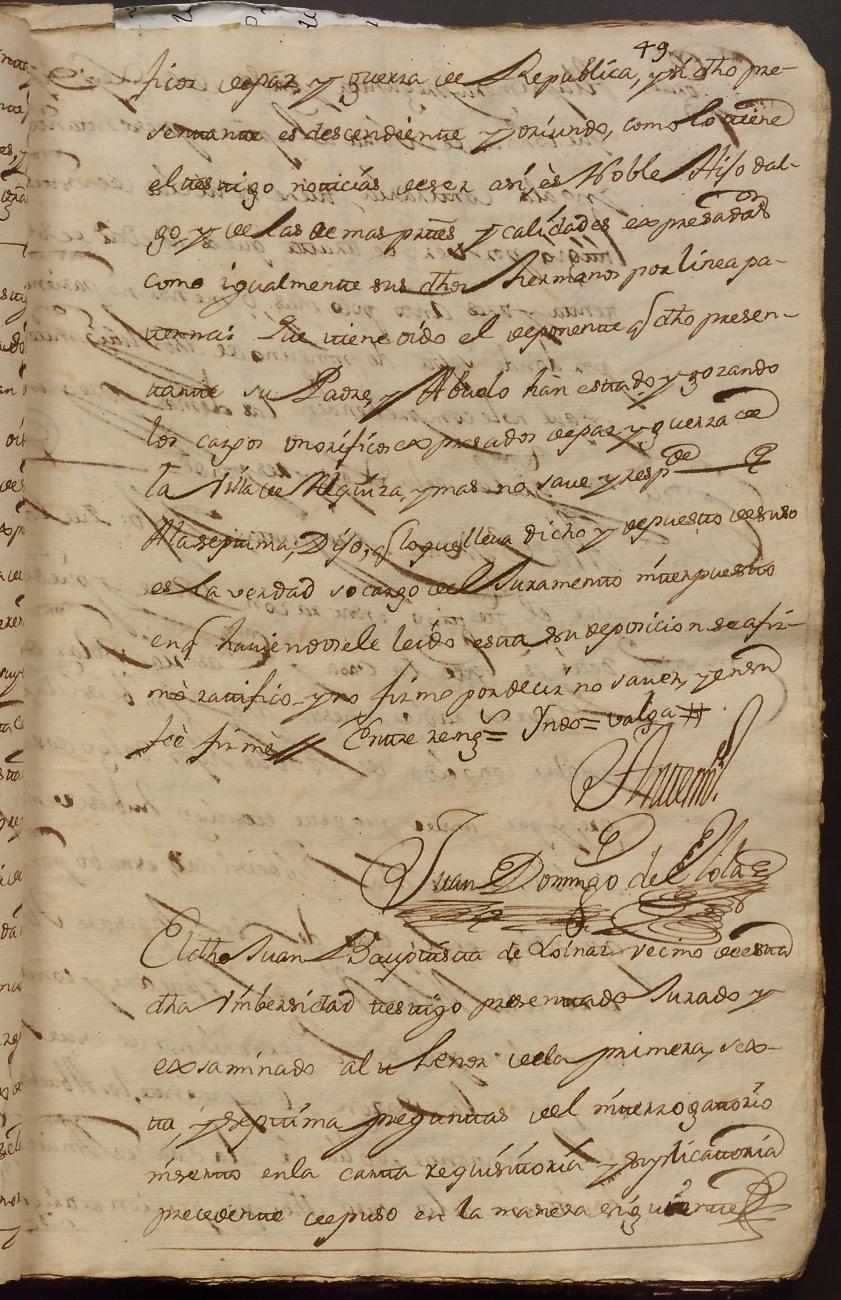 49
ficos de paz y guerra de Republica, y si dho pre-
sentante es descendiente y oriundo, como lo tiene
el testigo noticias de ser asi, ès Noble Hijo dal-
go y de las demas prtes y calidades expresadas
como igualmente sus dhos hermanos por linea pa-
terna: Que tiene oido el deponente q dho presen-
tante su Padre, y Abuelo hàn estado y gozando
los cargos onorificos expresados de paz y guerra de
la Villa de Alquiza, y mas no save y respde
Ala septima, Dijo, q lo que lleva dicho y depuesto de suso
es la verdad so cargo del Juramento interpuesto
en q haviendosele leido esta su deposicion se afir-
mò ratifico y no firmo por decir no saver, y en su
feè firmè // Entre reng = Yndo = valga #
Antemi
Juan Domingo de Elola
El dho Juan Bauptista de Loinaz vecino de esta
dha Vnibersidad testigo presentado Jurado y
exsaminado al thenor de la primera, sex-
ta, y septima preguntas del interrogatorio
inserto en la carta requisitoria y suplicatoria
precedente depuso en la manera siguiente